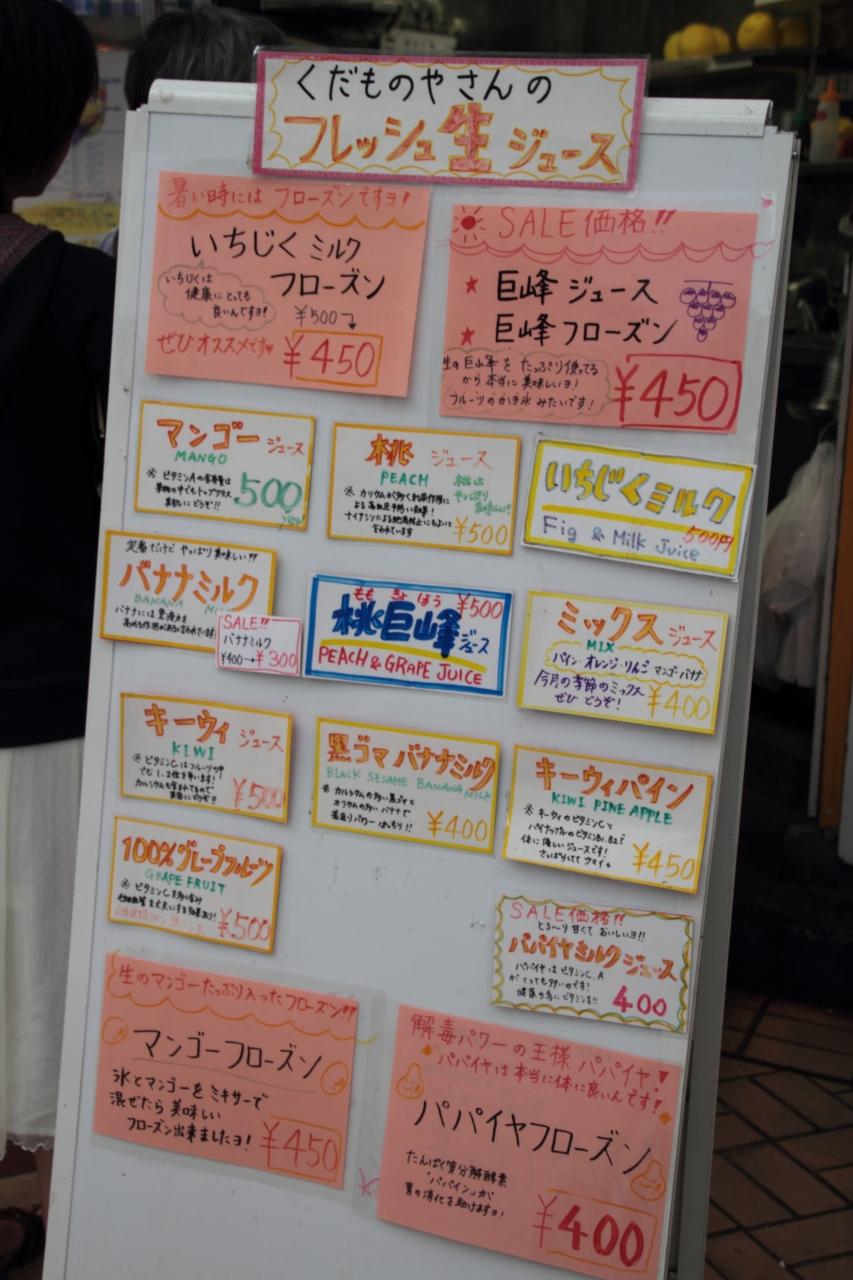 くだものやさんの
フレッシュ生ジュース
暑い時には フローズンですヨ!
いちじくミルク
フローズン
いちじくは
健康にとっても
良いんですヨ!
¥500
ぜひオススメです♥
¥450
SALE価格!!
★ 巨峰ジュース
★ 巨峰フローズン
生の巨峰を たっぷり使ってる
から本当に美味しいヨ!
フルーツのかき氷みたいです!
¥450
マンゴー ジュース
MANGO
※ビタミンAの含有量は
果物の中でもトップクラス
500
桃 ジュース
PEACH
よる高血圧予防に効果!
¥500
いちじくミルク
Fig & Milk Juice
500円
定番だけど やっぱり美味しい!!
バナナミルク
BANANA
SALE!!
バナナミルク
¥400→¥300
もも きょほう
¥500
桃巨峰ジュース
PEACH & GRAPE JUICE
ミックス ジュース
MIX
パイン・オレンジ・りんご マンゴー・バナナ
今月の季節のミックス
ぜひ どうぞ!
¥400
キーウィ ジュース
KIWI
※ビタミンCはフルーツの中
でも1、2位を争います!
¥500
黒ゴマ バナナミルク
BLACK SESAME BANANA MILK
※カルシウムの多い黒ゴマと
カリウムの多いバナナで
¥400
キーウィパイン
KIWI PINE APPLE
※キーウィのビタミンCと
パイナップルのビタミンB1、B2で
体に優しいジュースです!
さっぱりしてウマイ。
¥450
100%グレープフルーツ
GRAPE FRUIT
※ビタミンCを多く含み
¥500
SALE価格!!
とろ〜り甘くておいしいヨ!!
パパイヤミルクジュース
パパイヤはビタミンC、A
がとっても多いのです!
健康の為にビタミンを!!
400
生のマンゴーたっぷり入ったフローズン!!
マンゴーフローズン
氷とマンゴーをミキサーで
混ぜたら美味しい
フローズン出来ましたヨ!
¥450
解毒パワーの王様パパイヤ!
パパイヤは本当に体に良いんです!
パパイヤフローズン
たんぱく質分解酵素
「パパイン」が
胃の消化を助けますヨ!
¥400